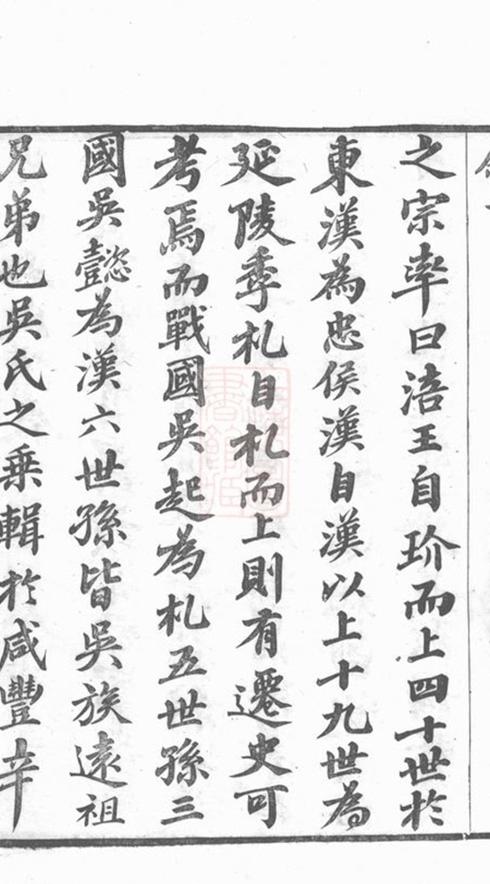 之宗率曰浯王自玠而上四十世於
東漢為忠侯漢自漢以上十九世為
延陵季札自札而上則有遷史可
考焉而戰國吳起為札五世孫三
國吳懿為漢六世孫皆吳族遠祖
兄弟也吳氏之乗輯於咸豐辛